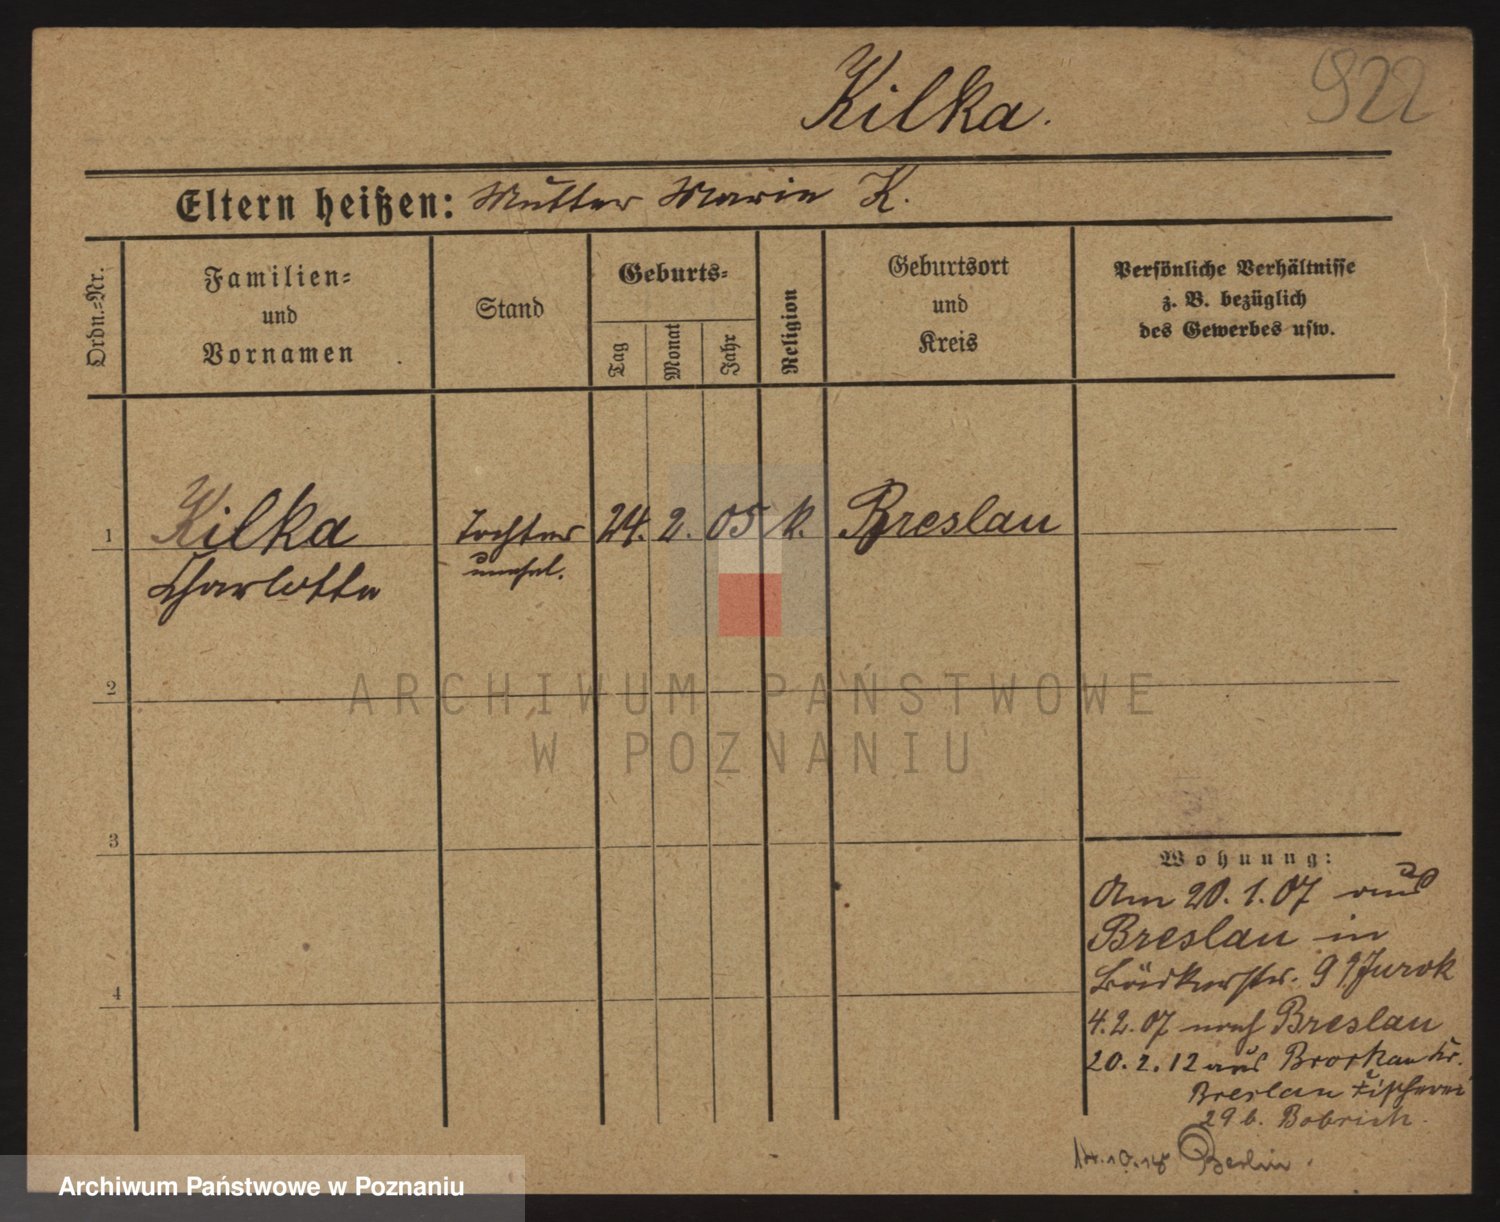 922
Kilka.
Eltern heißen: Mutter Marie K.
Ordn.=Nr.
Familien=
und
Vornamen
Stand
Geburts=
Tag
Monat
Jahr
Religion
Geburtsort
und
Kreis
Persönliche Verhältnisse
z. B. bezüglich
des Gewerbes usw.
1 Kilka Tochter 24. 2. 05 k. Breslau
Charlotte unehel.
2
3
4
Wohnung:
Am 20. 1. 07 aus
Breslau in
Bäckerstr. 9 Jurok
4. 2. 07 nach Breslau
20. 2. 12 aus Brockau Kr.
Breslau Fischerei
29 b. Bobrich.
14.10.18 Berlin.
ARCHIWUM PAŃSTWOWE
W POZNANIU
Archiwum Państwowe w Poznaniu